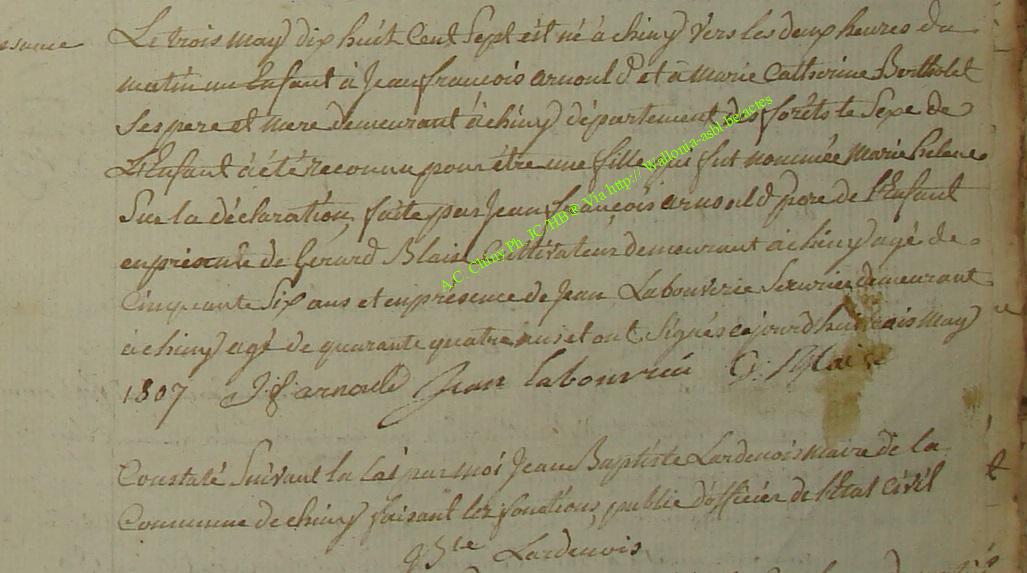 Le trois may dix huit Cent Sept est né à chiny vers les deux heures du
matin un Enfant à Jean francois arnould et à Marie Catherine Bertholet
Ses pere et mere demeurant à chiny département des forêts le Sexe de
L'Enfant à été reconnu pour être une fille qui fut nommée Marie helene
Sur la déclaration faite par Jean françois arnould pere de l'Enfant
en présence de Gérard Blaise Cultivateur demeurant à chiny agé de
Cinquante Six ans et en presence de Jean Labouverie demeurant
à chiny agé de quarante quatre ans et ont Signés cejourdhui trois May
1807 J f arnould Jean labouverie G. Blaise
Constaté Suivant la Loi par moi Jean Baptiste Lardenois maire de la
Commune de chiny faisant les fonctions publie d'officier de l'Etat Civil
Lardenois
A.C. Chiny Ph. JC/HB ® Via http:// Wallonia-asbl-be:actes